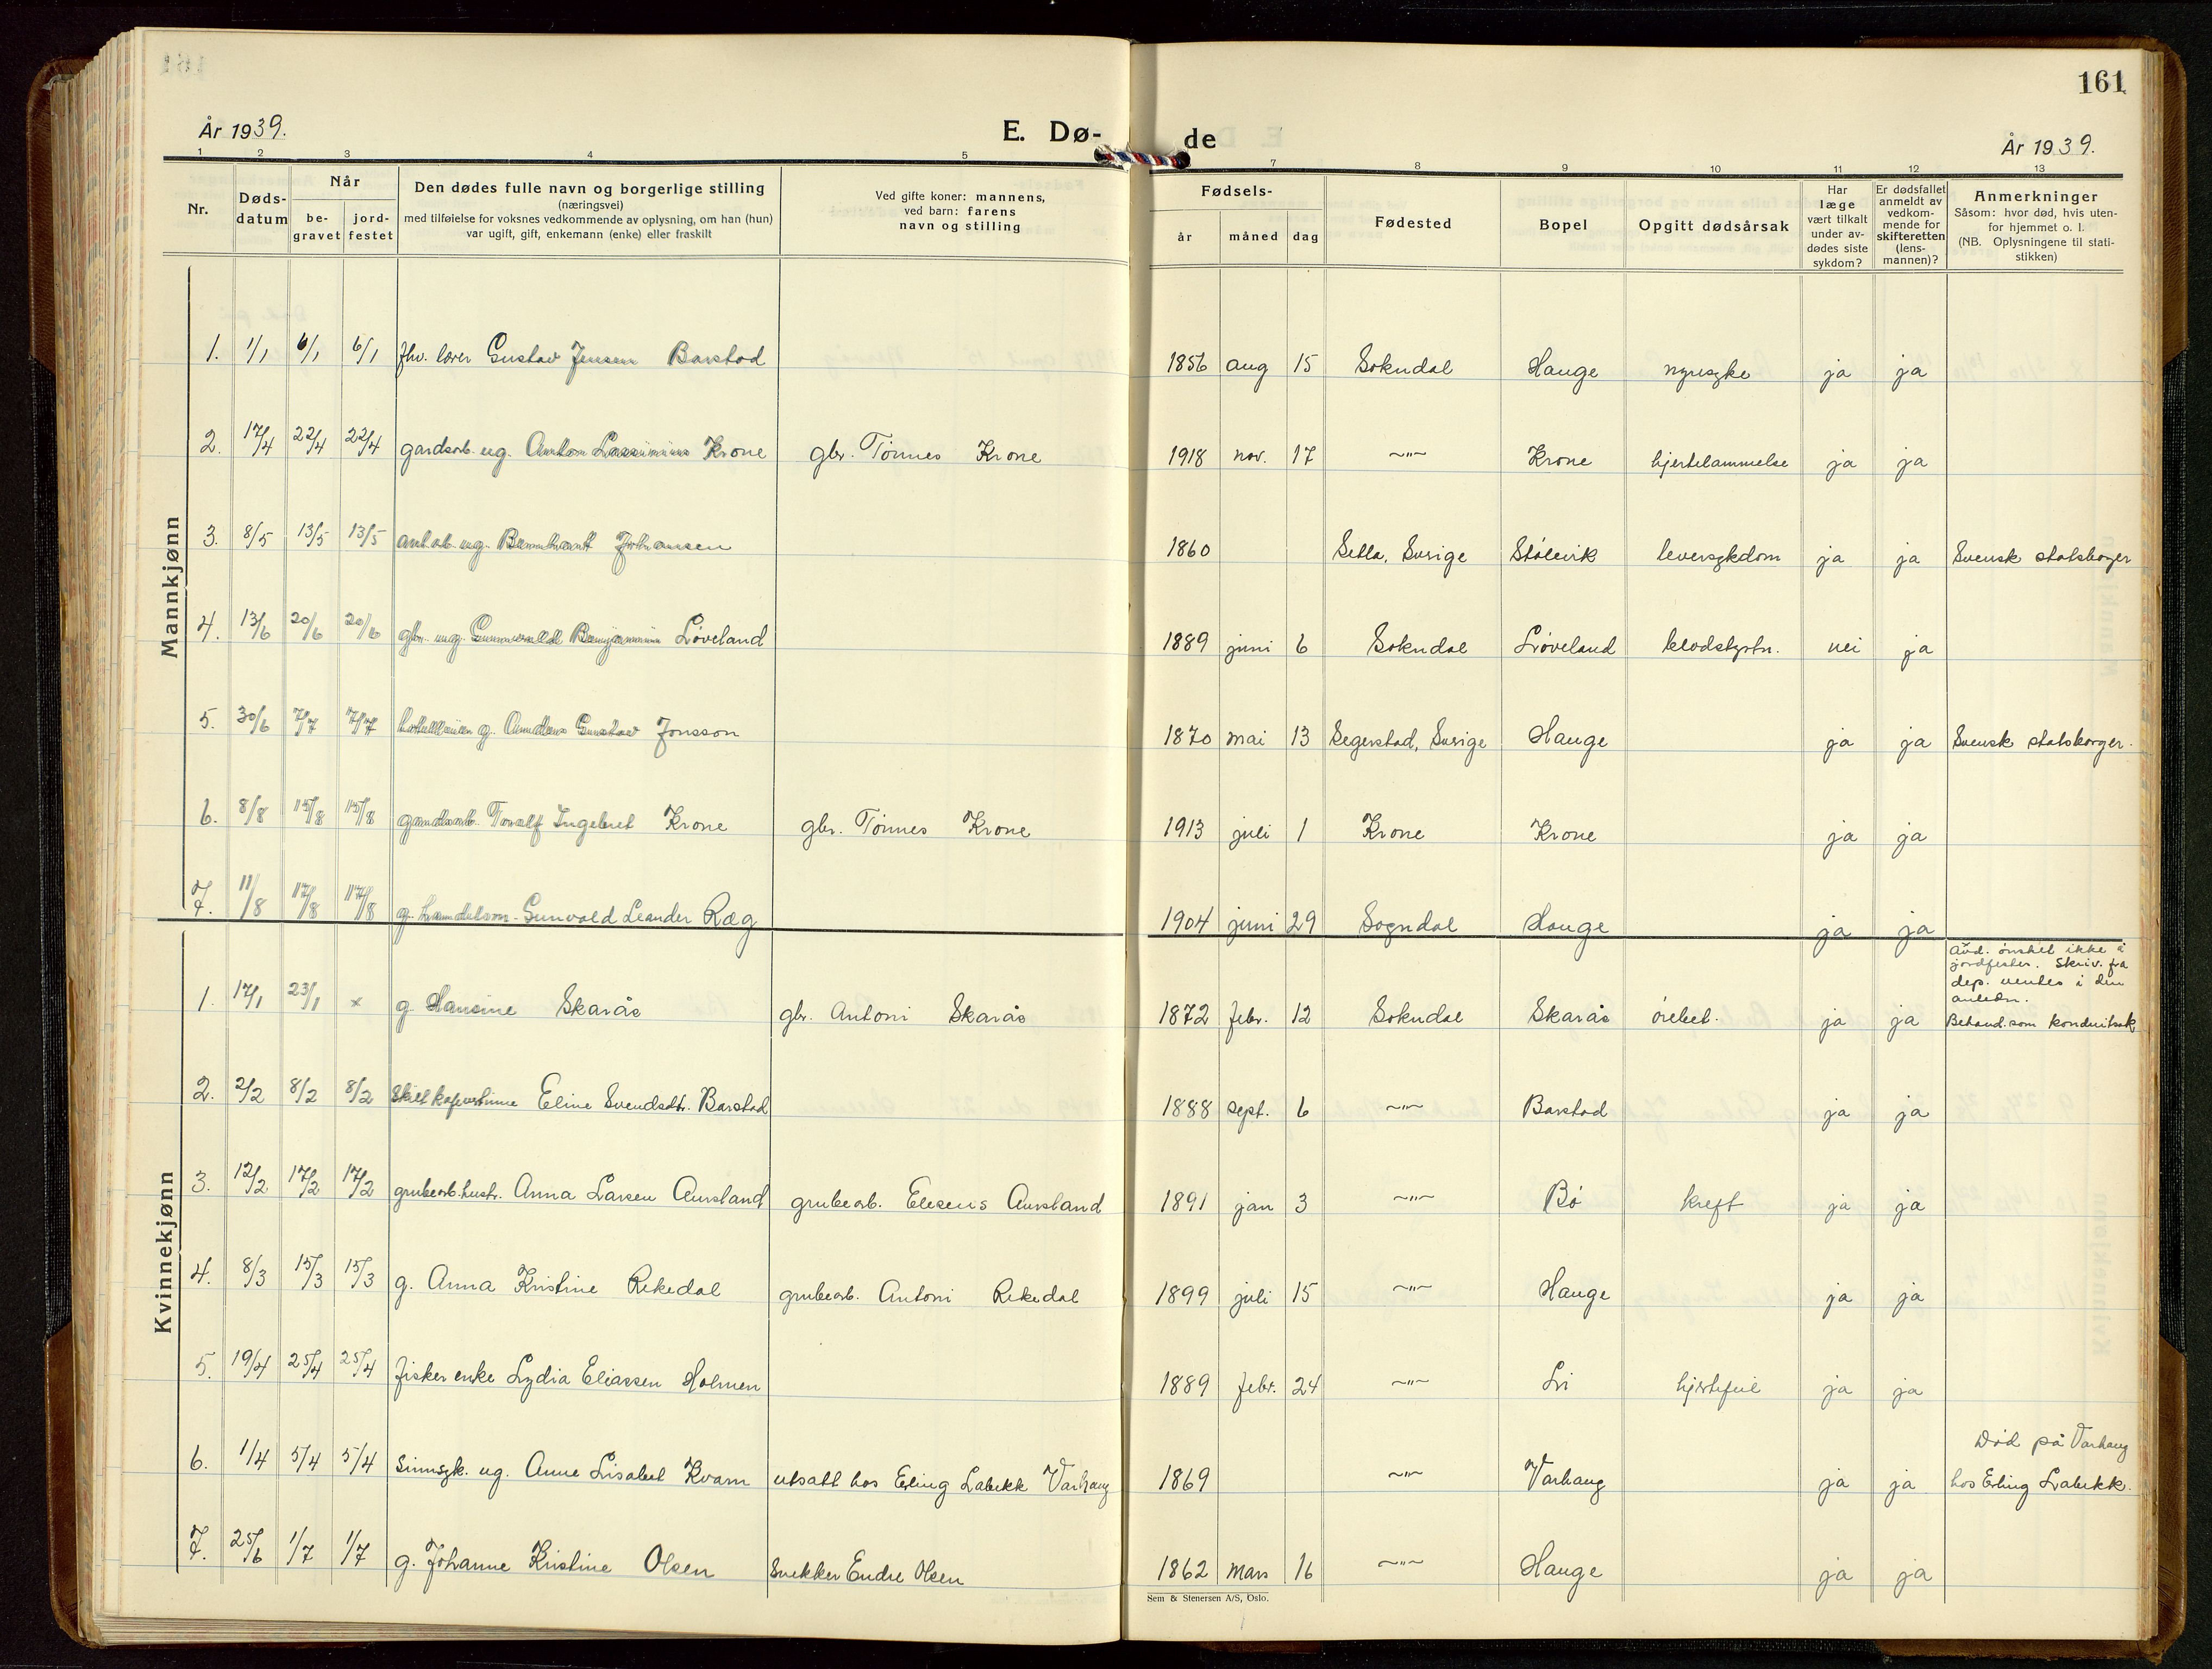 161
År 1939.
E. Dø-
de
År 1939.
1 2 3 4 5 7 8 9 10 11 12 13
Nr.
Døds-
datum
Når
be-
gravet
jord-
festet
Den dødes fulle navn og borgerlige stilling
(næringsvei)
med tilføielse for voksnes vedkommende av oplysning, om han (hun)
var ugift, gift, enkemann (enke) eller fraskilt
Ved gifte koner: mannens,
ved barn: farens
navn og stilling
Fødsels-
år måned dag
Fødested
Bopel
Opgitt dødsårsak
Har
læge
vært tilkalt
under av-
dødes siste
sykdom?
Er dødsfallet
anmeldt av
vedkom-
mende for
skifteretten
(lens-
mannen)?
Anmerkninger
Såsom: hvor død, hvis uten-
for hjemmet o. l.
(NB. Oplysningene til stati-
stikken)
Mannkjønn
1. 1/1 6/1 6/1 fhv. lærer Gustav Jensen Barstad 1856 aug 15 Sokndal Hauge nyresyke ja ja
2. 17/4 22/4 22/4 gardsarb. ug. Anton Krone gbr. Tønnes Krone 1918 nov. 17 ~"~ Krone hjertelammelse ja ja
3. 8/5 13/5 13/5 ug. Johansen 1860 Sella, Sverige Stølevik leversykdom ja ja Svensk statsborger
4. 13/6 20/6 20/6 gbr. ug. Benjamin Løveland 1889 juni 6 Sokndal Løveland blodstyrtn. nei ja
5. 30/6 7/7 7/7 g. Anders Gustav Jonsson 1870 mai 13 Segerstad, Sverige Hauge ja ja Svensk statsborger.
6. 8/8 15/8 15/8 gardsarb. Toralf Ingebret Krone gbr. Tønnes Krone 1913 juli 1 Krone Krone ja ja
7. 11/8 17/8 17/8 g. handelsm. Gunvald Leander Ræg 1904 juni 29 Sogndal Hauge ja ja
Kvinnekjønn
Avd. ønsket ikke å
jordfestes. Skriv. fra
dep. ventes i den
anledn.
1. 17/1 23/1 x g. Hansine Skarås gbr. Antoni Skarås 1872 febr. 12 Sokndal Skarås ja ja Behand. som konduitsak
2. 2/2 8/2 8/2 Skilt kafévertinne Eline Svendsdtr. Barstad 1888 sept. 6 ~"~ Barstad ja ja
3. 12/2 17/2 17/2 grubearb. hustr. Anna Larsen Aursland grubearb. Elesens Aursland 1891 jan 3 ~"~ Bø kreft ja ja
4. 8/3 15/3 15/3 g. Anna Kristine Rekedal grubearb. Antoni Rekedal 1899 juli 15 ~"~ Hauge ja ja
5. 19/4 25/4 25/4 fisker enke Lydia Eliassen Holmen 1889 febr. 24 ~"~ Li hjertefeil ja ja
Død på Varhaug
6. 1/4 5/4 5/4 sinnsyk. ug. Anne Lisabet Kvam utsatt hos Erling Labukk Varhaug 1869 ~"~ Varhaug ja ja hos Erling Labukk.
7. 25/6 1/7 1/7 g. Johanne Kristine Olsen Snekker Endre Olsen 1862 mars 16 ~"~ Hauge ja ja
Sem & Stenersen A/S, Oslo.